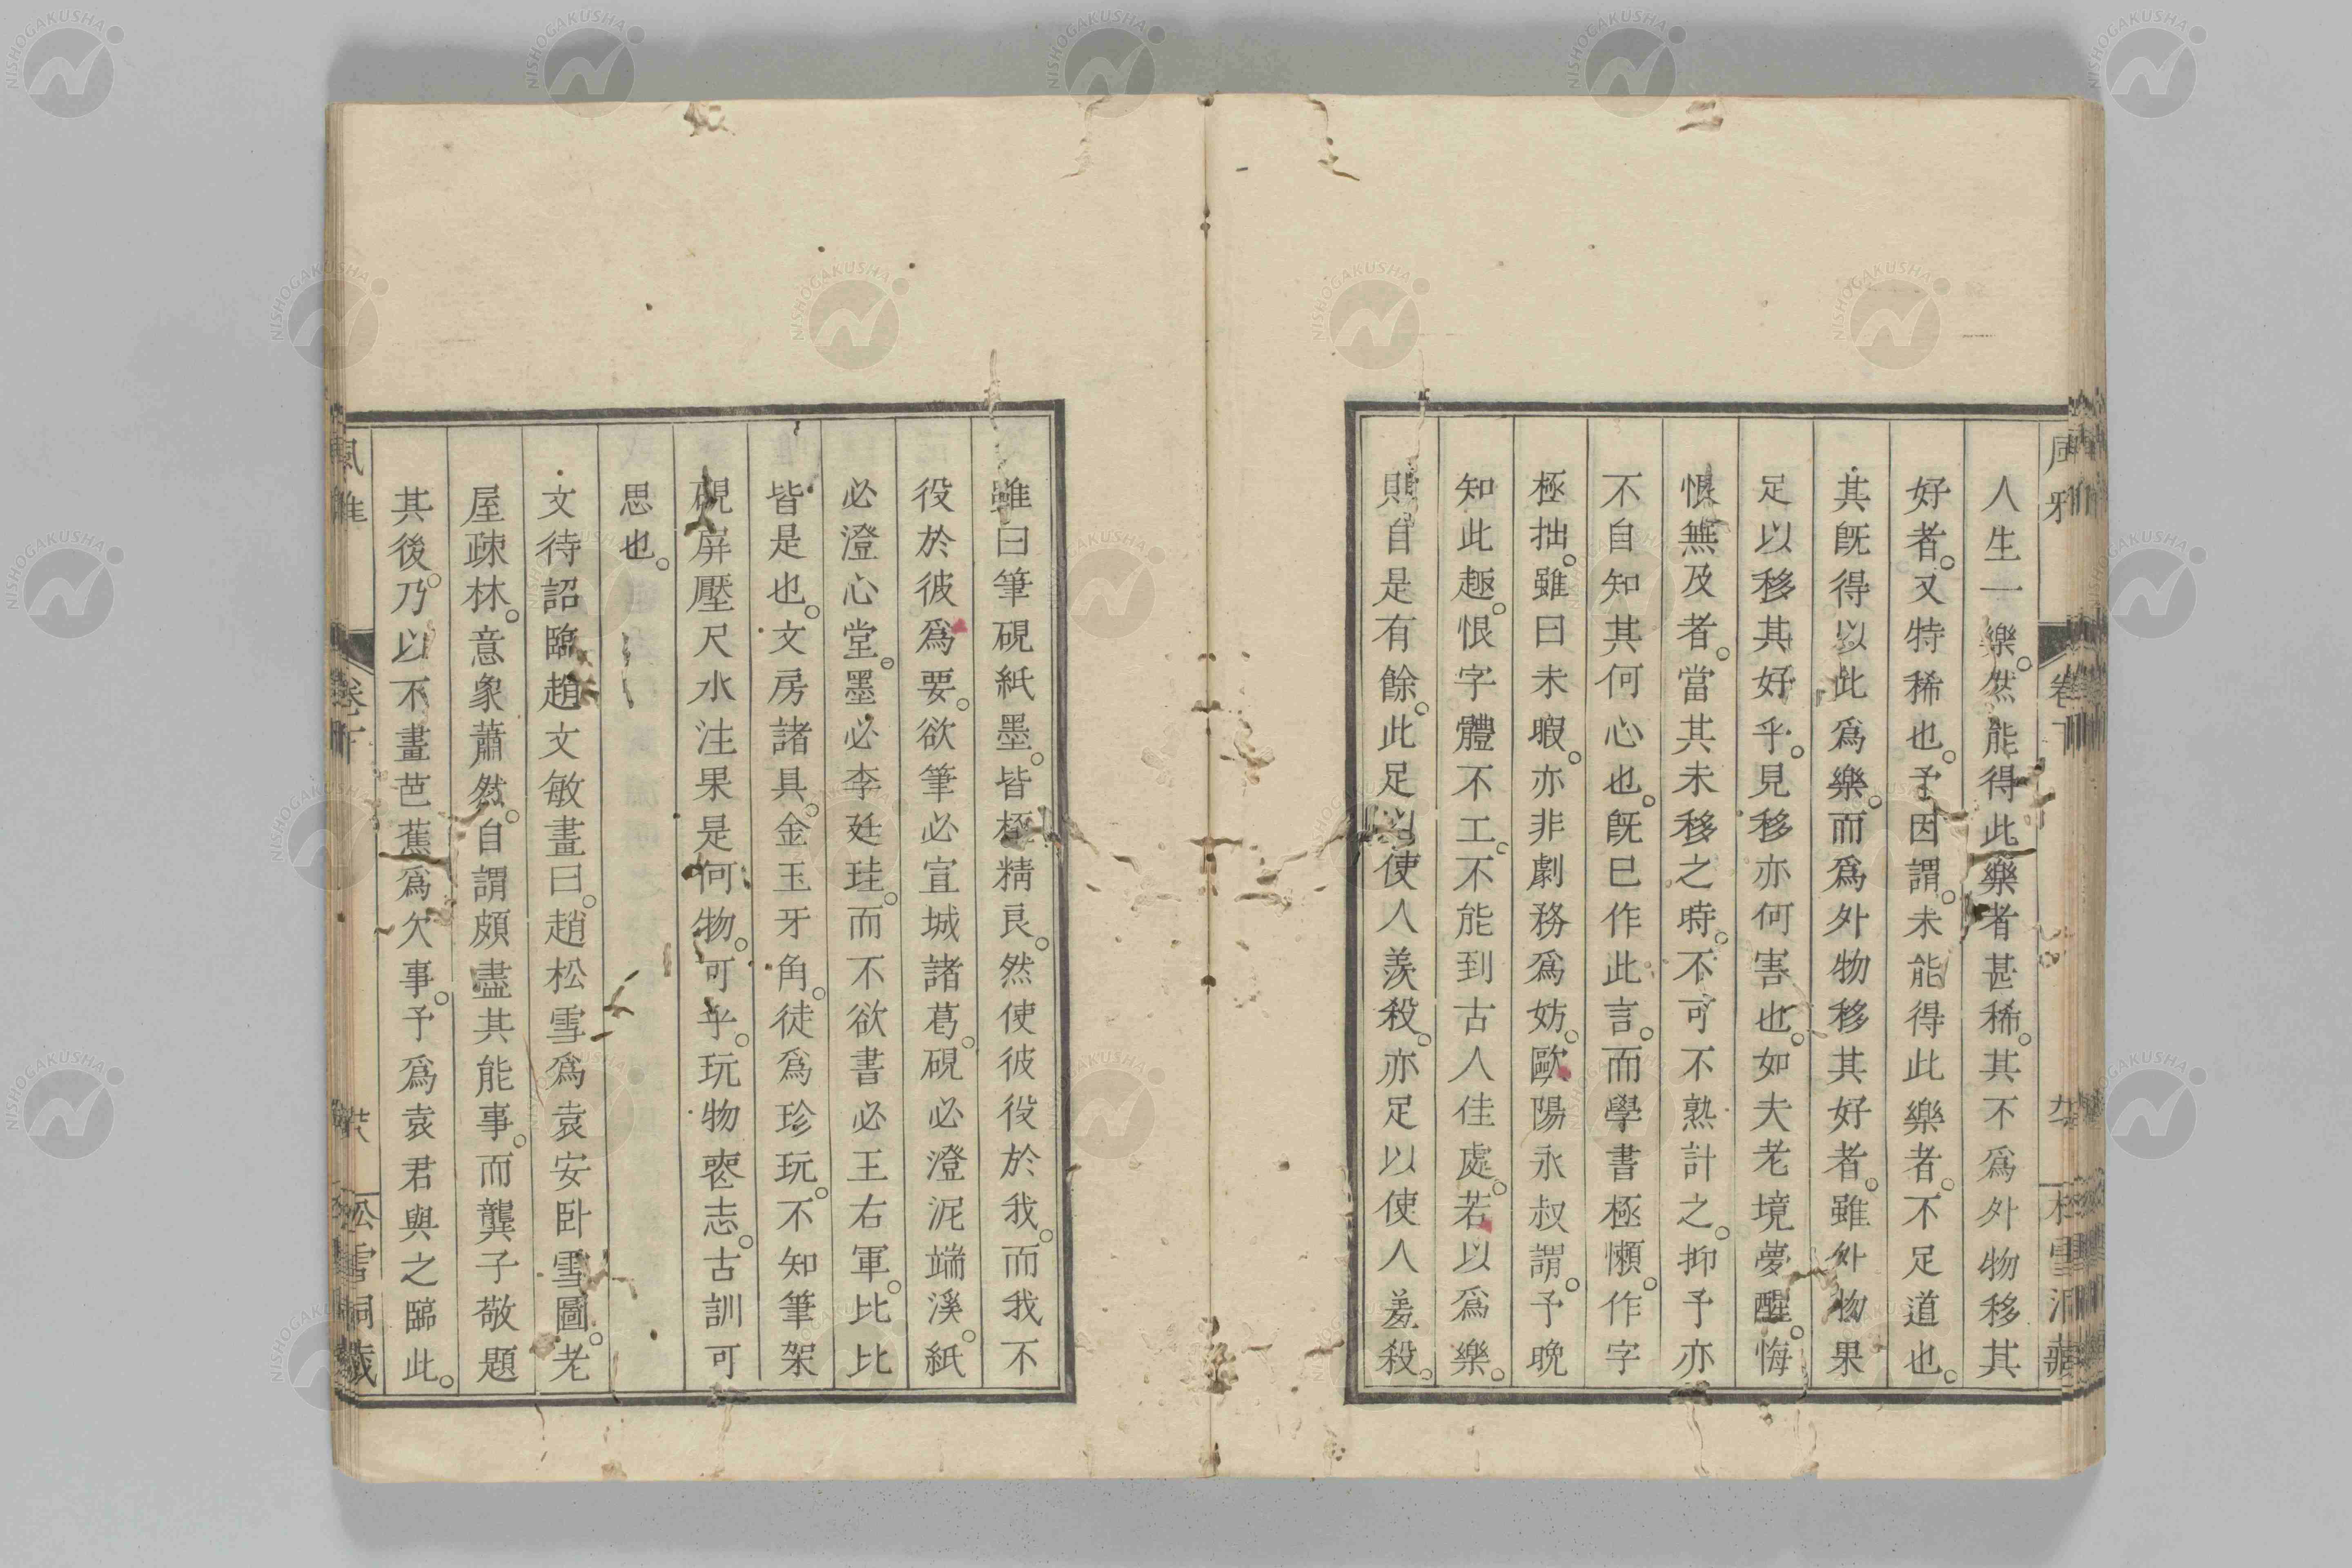 人生一樂。然能得此樂者甚稀。其不爲外物移其
好者。又特稀也。予因謂。未能得此樂者。不足道也。
其旣得以此爲樂。而爲外物移其好者。雖外物果
足以移其好乎。見移移亦何害也。如夫老境夢醒。悔
恨無及者。當其未移之時。不可不熟計之。抑予亦
不自知其何心也。旣已作此言。而學書極懶。作字
極拙。雖曰未暇。亦非劇務爲妨。歐陽永叔謂。予晩
知此趣。恨字體不工。不能到古人佳處。若以爲樂。
則自是有餘。此足以使人羨殺。亦足以使人羞殺。
雖曰筆硯紙墨。皆極精良。然使彼役於我。而我不
役於彼爲要。欲筆必宣城諸葛。硯必澄泥端溪。紙
必澄心堂。墨必李廷珪。而不欲書必王右軍。比比
皆是也。文房諸具。金玉牙角。徒爲珍玩。不知筆架
硯屏壓尺水注果是何物。可乎。玩物喪志。古訓可
思也。
文待詔臨趙文敏畫曰。趙松雪爲袁安臥雪圖。老
屋疎林。意象蕭然。自謂頗盡其能事。而龔子敬題
其後。乃以不畫芭蕉爲欠事。予爲袁君與之臨此。
卷下
NISHOGAKUSHA